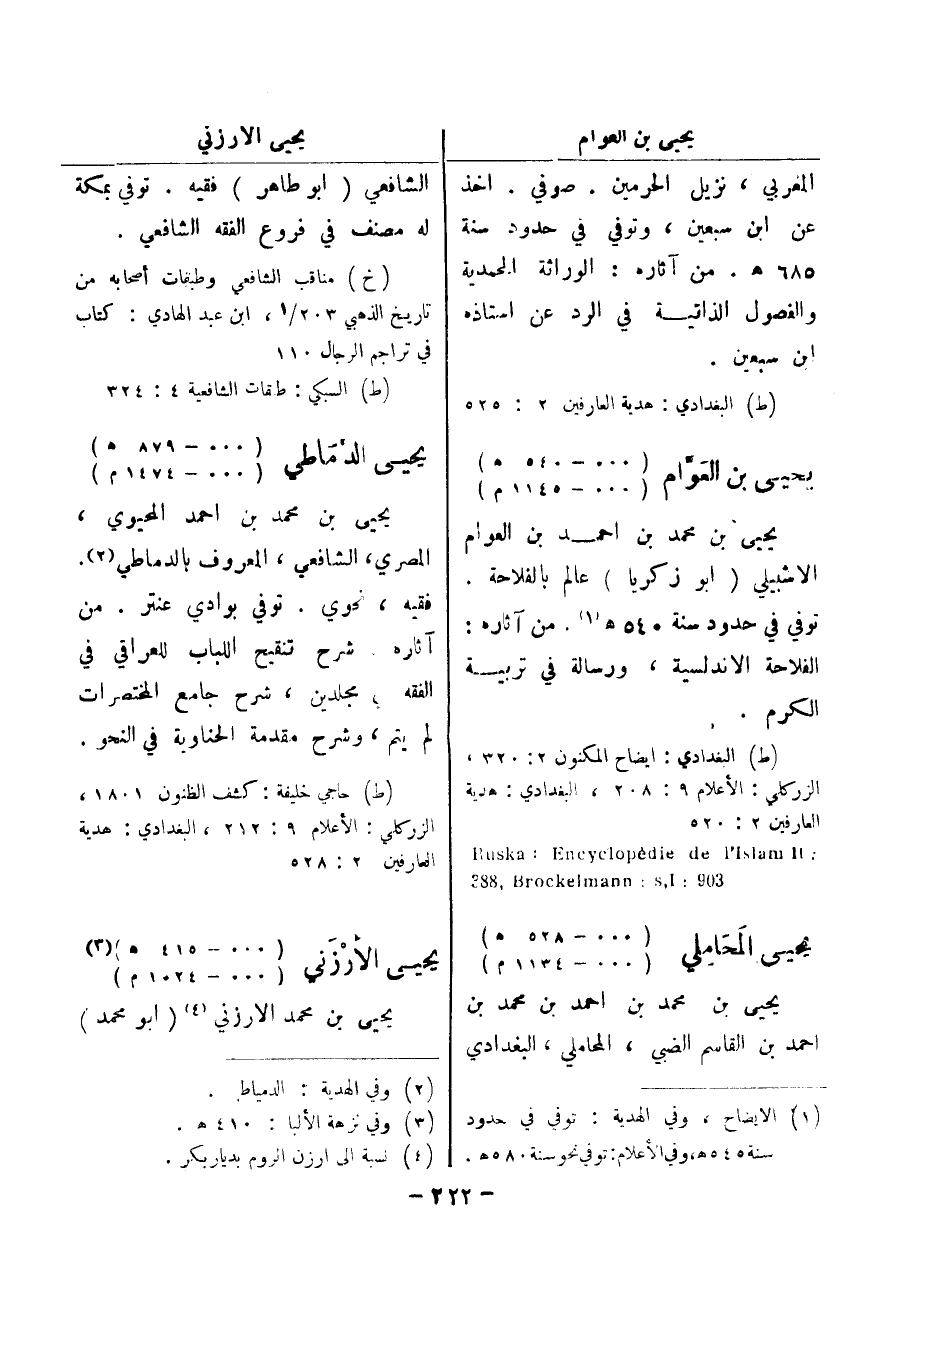 يحيى بن العوام
المغربي ، نزيل الحرمين . صوفي . اخذ
عن ابن سبعين ، وتوفي في حدود سنة
٦٨٥ هـ . من آثاره : الوراثة المحمدية
والفصول الذاتيـــة في الرد عن استاذه
ابن سبعين .
(ط) البغدادي : هدية العارفين ٢ : ٥٢٥
يحيـى بن العَوَّام ( ٠٠٠ – ٥٤٠ هـ )
( ٠٠٠ – ١١٤٥ م )
يحيى بن محمد بن احمـــد بن العوام
الاشبيلي ( ابو زكريا ) عالم بالفلاحة .
توفي في حدود سنة ٥٤٠ هـ (١) . من آثاره :
الفلاحة الاندلسية ، ورسالة في تربيـــة
الكرم .
(ط) البغدادي : ايضاح المكنون ٢ : ٣٢٠ ،
الزركلي : الأعلام ٩ : ٢٠٨ ، البغدادي : هدية
العارفين ٢ : ٥٢٠
Ruska : Encyclopédie de l'Islam II :
388, Brockelmann : s,I : 903
يحيـى المَحَامِلي ( ٠٠٠ – ٥٢٨ هـ )
( ٠٠٠ – ١١٣٤ م )
يحيى بن محمد بن احمد بن محمد بن
احمد بن القاسم الضبي ، المحاملي ، البغدادي
(١) الايضاح ، وفي الهدية : توفي في حدود
سنة ٥٤٥ هـ، وفي الأعلام : توفي نحو سنة ٥٨٠ هـ .
يحيى الارزني
الشافعي ( ابو طاهر ) فقيه . توفي بمكة
له مصنف في فروع الفقه الشافعي .
(خ) مناقب الشافعي وطبقات أصحابه من
تاريخ الذهبي ٢٠٣/١ ، ابن عبد الهادي : كتاب
في تراجم الرجال ١١٠
(ط) السبكي : طبقات الشافعية ٤ : ٣٢٤
يحيـى الدمَاطي ( ٠٠٠ – ٨٧٩ هـ )
( ٠٠٠ – ١٤٧٤ م )
يحيى بن محمد بن احمد المحيوي ،
المصري، الشافعي ، المعروف بالدماطي(٢).
فقيه ، نحوي . توفي بوادي عنتر . من
آثاره . شرح تنقيح اللباب للعراقي في
الفقه في مجلدين ، شرح جامع المختصرات
لم يتم ، وشرح مقدمة الحناوية في النحو .
(ط) حاجي خليفة : كشف الظنون ١٨٠١ ،
الزركلي : الأعلام ٩ : ٢١٢ ، البغدادي : هدية
العارفين ٢ : ٥٢٨
يحيـى الأَرْزَني ( ٠٠٠ – ٤١٥ هـ )(٣)
( ٠٠٠ – ١٠٢٤ م )
يحيى بن محمد الارزني (٤) ( ابو محمد )
(٢) وفي الهدية : الدمياط .
(٣) وفي نزهة الألبا : ٤١٠ هـ .
(٤) نسبة الى ارزن الروم بديار بكر .
– ٢٢٢ –